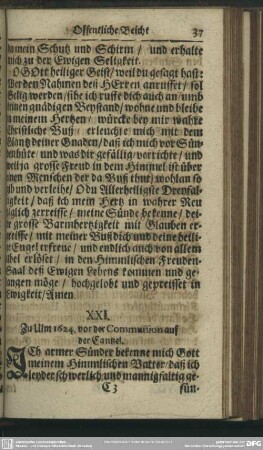 Offentliche Beicht 37
mein Schutz und Schirm / und erhalte
mich zu der Ewigen Seligkeit.
GOtt heiliger Geist / weil du gesagt hast:
Wer den Nahmen deß HErren anruffet / sol
Selig werden / sihe ich ruffe dich auch an / umb
deinen gnädigen Beystand / wohne und bleibe
in meinem Hertzen / würcke bey mir wahre
Christliche Buß / erleuchte mich mit dem
Glantz deiner Gnaden / daß ich mich vor Sün-
den hüte / und was dir gefällig / verrichte / und
weil ja grosse Freud in dem Himmel ist über
einen Menschen der da Buß thut / wohlan so
gib und verleihe / O du Allerheiligste Dreyfal-
tigkeit / daß ich mein Hertz in wahrer Reu
zerreisse / meine Sünde bekenne / dei-
ne grosse Barmhertzigkeit mit Glauben er-
greiffe / mit meiner Buß dich und deine heili-
ge Engel erfreue / und endlich auch von allem
übel erlöset / in den Himmlischen Freuden-
Saal deß Ewigen Lebens kommen und ge-
langen möge / hochgelobt und gepreiset in
Ewigkeit / Amen.
XXI.
Zu Ulm 1624. vor der Communion auf
der Cantzel.
ICh armer Sünder bekenne mich Gott
meinem Himmlischen Vatter / daß ich
leyder schwerlich und mannigfaltig ge-
C 3 sün-